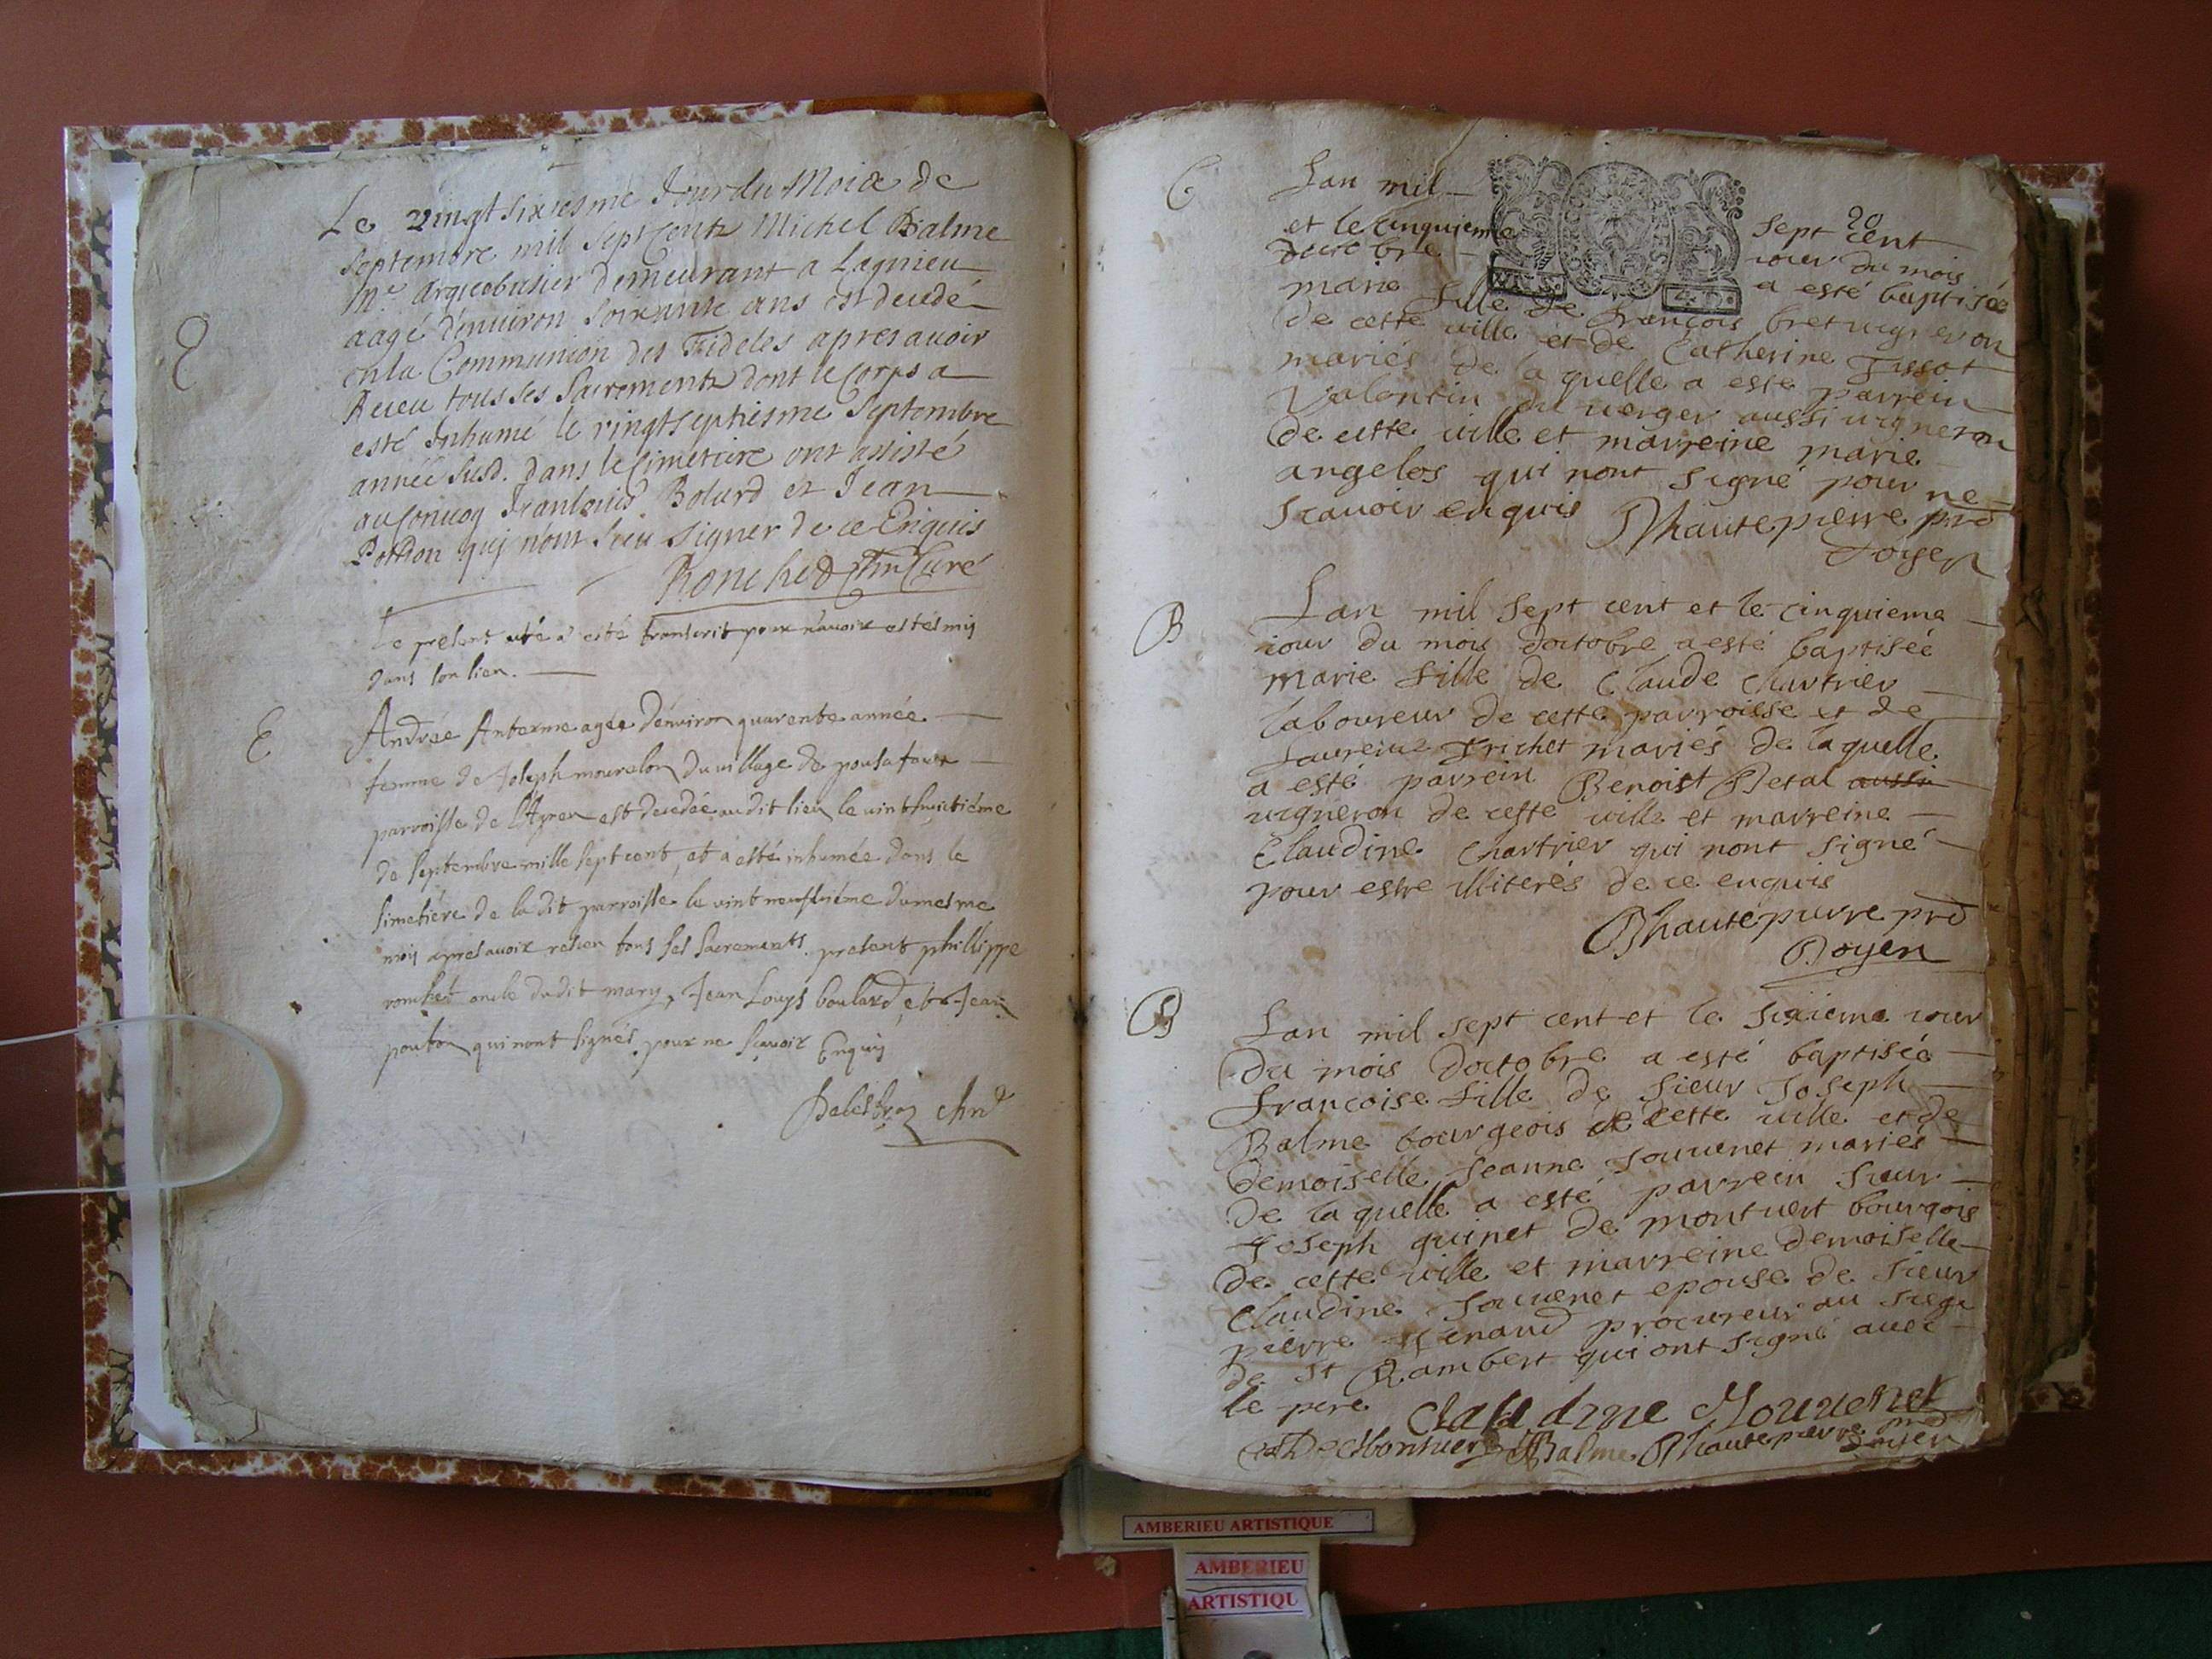 Le vingt sixiesme Jour du Mois de
Septembre mil sept Centz Michel Balme
Me. Arquebusier demeurant a Lagnieu
aagé d'enuiron soixante ans est decedé
en la Communion des Fideles apres auoir
Receu tous ses Sacrementz dont le corps a
esté Inhumé le vingtseptiesme Septembre
année susd. dans le Cimetiere ont assisté
au Conuoy Jean Bolard et Jean
qui n'ont sceu signer de ce Enquis
Curé
Le present acte a esté transcrit pour n'auoir esté mis
dans son lieu.
E
E
Andrée Anterme agée d'enuiron quarente année
femme de Joseph mourelon du village de pousafour
parroisse de est decedée au dit lieu le vint huictiéme
de septembre mille sept cent, et a esté inhumée dans le
simetiére de la dit parroisse le vint neufuiéme du mesme
mois apres auoir reseu tous ses sacrements. present phillippe
ronchet oncle du dit mary, Jean Louys boulard, et Jean
pouton qui n'ont signés pour ne sçauoir Enquis
20
Lan mil sept cent
et le cinquieme iour du mois
doctobre a esté baptisée
marie fille de françois bret uigneron
de cette uille et de Catherine Tissot
mariés de la quelle a esté parrein
Valentin du uerger aussi uigneron
de cette uille et marreine marie
angelos qui nont signé pour ne
scauoir enquis Dhautepierre prd
doyen
B
Lan mil sept cent et le cinquieme
iour du mois doctobre a esté baptisée
marie fille de Claude Chartrier
laboureur de cette parroisse et de
Laurence Trichet mariés de la quelle
a esté parrein Benoist Detal aussi
uigneron de cette uille et marreine
Claudine Chartrier qui nont signé
pour estre illiterés de ce enquis
Dhautepierre prd
Doyen
B
Lan mil sept cent et le sixieme iour
du mois doctobre a esté baptisée
françoise fille de sieur Joseph
Balme bourgeois de cette uille et de
demoiselle Jeanne Jouuenet mariés
de la quelle a esté parrein sieur
Joseph quinet de montuert bourgois
de cette uille et marreine demoiselle
Claudine Jouuenet epouse de sieur
pierre procureur au siege
de St Rambert qui ont signé auec
le pere Claudine Jouuenet
De Montuert Balme Dhautepierre prd
doyen
AMBERIEU ARTISTIQUE
AMBERIEU
ARTISTIQU